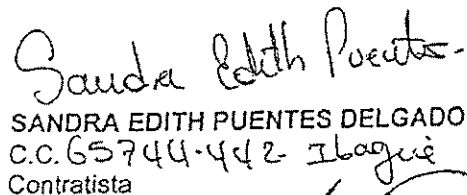 Sandra Edith Puentes.
SANDRA EDITH PUENTES DELGADO
C.C. 65744.442 Ibagué
Contratista